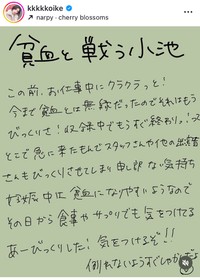 kkkkkoike
narpy・cherry blossoms
貧血と戦う小池
この前、お仕事中にクラクラっと!
今まで貧血とは無縁だったのでそれはもう
びっくりさ!収録中でもうすぐ終わりって
とこで急に来たもんでスタッフさんや他の出演者
さんもびっくりさせてしまい申し訳ない気持ち
妊娠中は貧血になりやすいようなので
その日から食事やサプリでも気をつけてる
あーびっくりした!気をつけるぞ!!
倒れないようすぐしゃがんだよ